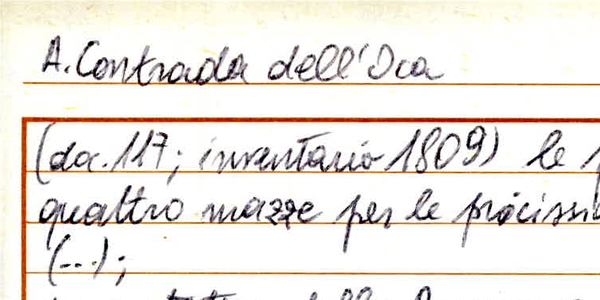 A. Contrada dell'Oca
(doc. 117; inventario 1809) le
quattro mazze per le
(...);